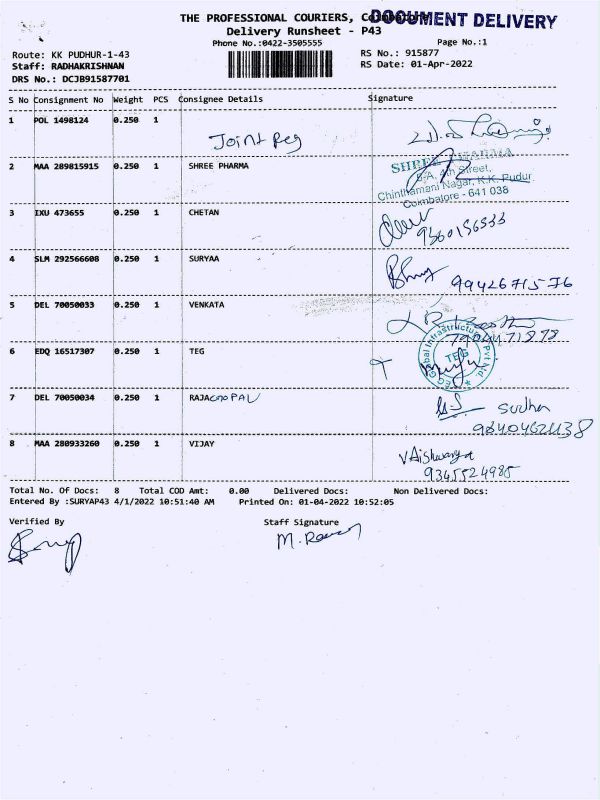 THE PROFESSIONAL COURIERS, Coimbatore
DOCUMENT DELIVERY
Delivery Runsheet - P43
Phone No.:0422-3505555
Page No.:1
Route: KK PUDHUR-1-43
RS No.: 915877
Staff: RADHAKRISHNAN
RS Date: 01-Apr-2022
DRS No.: DCJB91587701
S No Consignment No Weight PCS Consignee Details Signature
1 POL 1498124 0.250 1
Joint Reg
2 MAA 289815915 0.250 1 SHREE PHARMA
SHREE PHARMA
6/A, 4th Street,
Chinthamani Nagar, K.K. Pudur
Coimbatore - 641 038
3 IXU 473655 0.250 1 CHETAN
9360156533
4 SLM 292566608 0.250 1 SURYAA
99426715 76
5 DEL 70050033 0.250 1 VENKATA
6 EDQ 16517307 0.250 1 TEG
TEG Global Infrastructure Pvt Ltd
TEG
7 DEL 70050034 0.250 1 RAJAGOPAL
Sudha
8 MAA 280933260 0.250 1 VIJAY
VAishwarya
9345524985
Total No. Of Docs: 8 Total COD Amt: 0.00 Delivered Docs: Non Delivered Docs:
Entered By :SURYAP43 4/1/2022 10:51:40 AM Printed On: 01-04-2022 10:52:05
Verified By Staff Signature